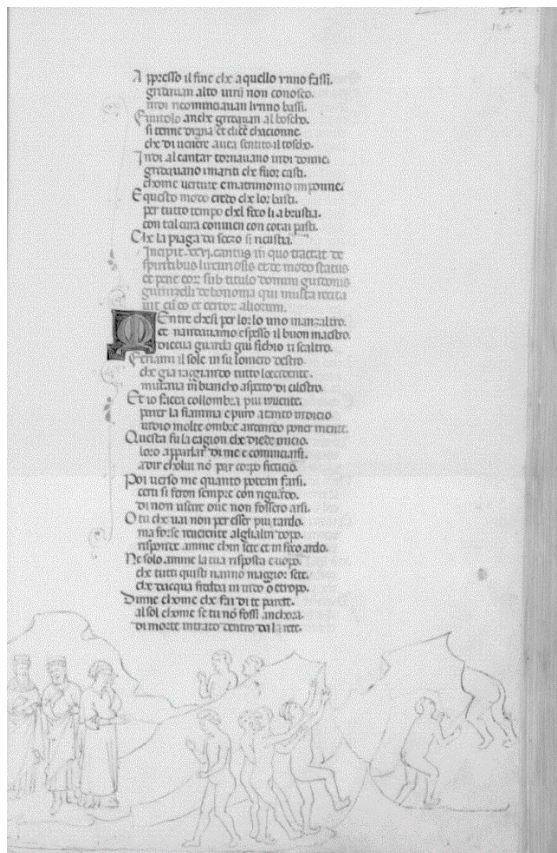 Appresso il fine che a quello ynno fassi.
gridauan alto uirũ non conosco.
indi ricominciauan lynno bassi.
Finitolo anche gridauan al boscho.
si tenne diana et elice chacionne.
che di uenere auea sentito il toscho.
Indi al cantar tornauano indi donne.
gridauano i mariti che fuor casti.
chome uertute e matrimonio imponne.
E questo modo credo che lor basti.
per tutto tempo chel foco li abruscia.
con tal cura conuien con cotai pasti.
Che la piaga da sezzo si ricuscia.
Incipit .xxvi. cantus in quo tractat de
spiritibus
et de modo status
sub titulo domini guidonis
de bononia qui multa
aliorum.
MEntre chesi per lorlo uno inanzaltro.
ce nandauamo espesso il buon maestro.
diceua guarda qui ti scaltro.
Feriami il sole in su lomero destro.
che gia raggiando tutto loccidente.
mutaua in biancho aspetto di cilestro.
Et io facea collombra piu rouente.
parer la fiamma e puro atanto indicio
uidio molte ombre andando poner mente.
Questa fu la cagion che diede inicio.
loro apparlar di me e cominciarsi.
adir cholui nõ par corpo fitticio.
Poi uerso me quanto potean farsi.
certi si feron sempre con riguardo.
di non uscire oue non fossero arsi.
O tu che uai non per esser piu tardo.
ma forse reuerente aglialtri dopo.
rispondi amme chin sete et in foco ardo.
Ne solo amme la tua risposta e uopo.
che tutti questi nanno maggior sete.
che dacqua fredda indo o etiopo.
Dinne chome che fai di te parete.
al sol chome se tu nõ fossi anchora.
di morte intrato dentro da la rete.